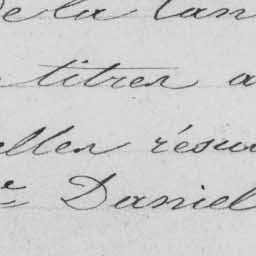 de la
titres a
elles résu
e Daniel